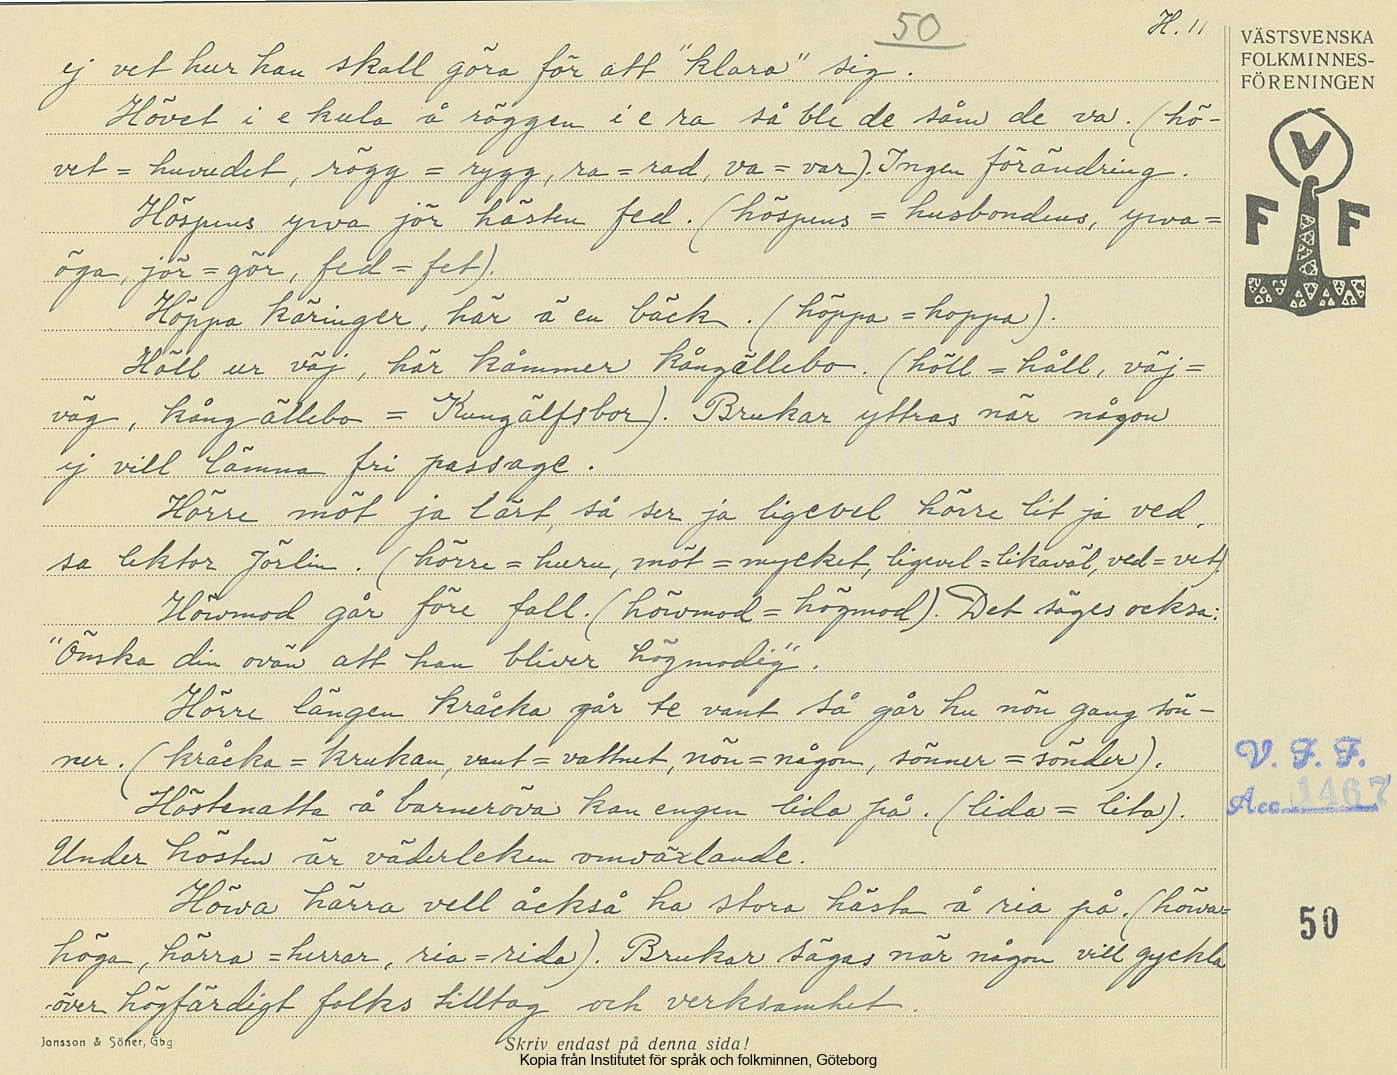 50
H. 11
VÄSTSVENSKA
FOLKMINNES-
FÖRENINGEN
V
F F
ej vet hur han skall göra för att "klara" sig.
Hövet i e kula å röggen i e ra så ble de såm de va. (hö-
vet = huvudet, rögg = rygg, ra = rad, va = var). Ingen förändring.
Höspens ywa jör hästen fed. (höspens = husbondens, ywa =
öga, jör = gör, fed = fet).
Höppa käringer, här ä en bäck. (höppa = hoppa).
Höll ur väj, här kåmmer kångällebo. (höll = håll, väj =
väg, kångällebo = Kungälfsbor). Brukar yttras när någon
ej vill lämna fri passage.
Hörre möt ja lärt, så ser ja ligevel hörre lit ja ved,
sa lektor Jörlin. (hörre = huru, möt = mycket, ligevel = likaväl, ved = vet).
Höwmod går före fall. (höwmod = högmod). Det säges ocksa:
"Önska din ovän att han bliver högmodig".
Hörre längen kråcka går te vant så går hu nön gang sön-
ner. (kråcka = krukan, vant = vattnet, nön = någon, sönner = sönder).
Höstenatta å barneröva kan engen lida på. (lida = lita).
Under hösten är väderleken omväxlande.
Höwa härra vell åckså ha stora hästa å ria på. (höwa =
höga, härra = herrar, ria = rida). Brukar sägas när någon vill gyckla
över högfärdigt folks tilltag och verksamhet.
V. F. F.
Acc. 1467
50
Jonsson & Söner, Gbg
Skriv endast på denna sida!
Kopia från Institutet för språk och folkminnen, Göteborg